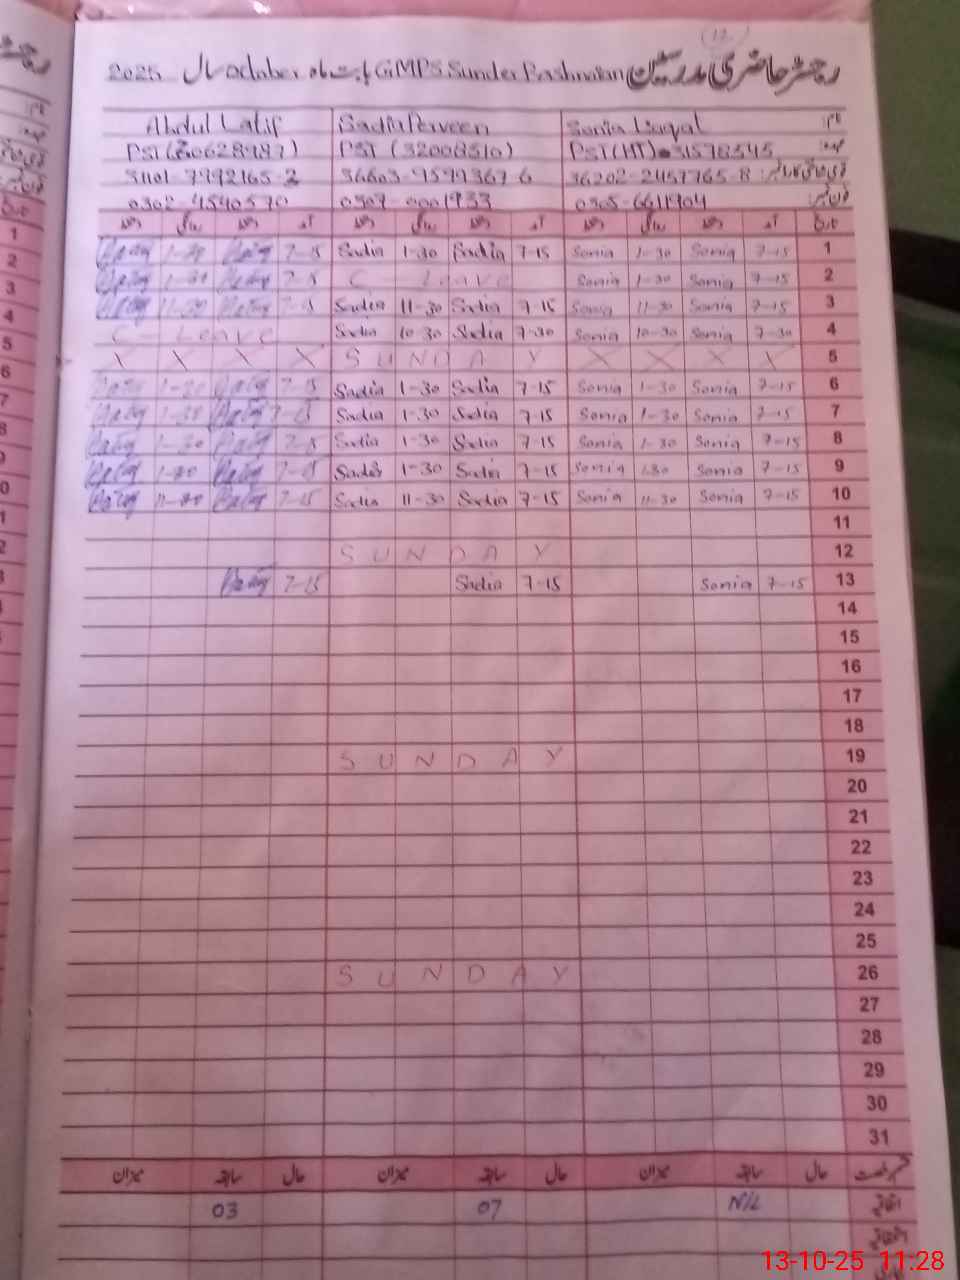 12
رجسٹر حاضری مدرسین GMPS Sunder بابت ماه October سال 2025
نام: Sonia Sadia Parveen Abdul Latif
عہدہ: PST(HT) 31598545 PST (32008510) PST
قومی شناختی کارڈ نمبر: 36202-2457765-8 36603-9599367-6 31101-7992165-2
فون نمبر: 0305-6611904 0307-0001933 0302-4540570
تاریخ آمد دستخط روانگی دستخط آمد دستخط روانگی دستخط آمد دستخط روانگی دستخط
1-30 7-15 Sadia 1-30 Sadia 7-15 Sonia 1-30 Sonia 7-15 1
1-30 7-15 C - Leave Sonia 1-30 Sonia 7-15 2
11-30 7-15 Sadia 11-30 Sadia 7-15 Sonia 11-30 Sonia 7-15 3
C - Leave Sadia 10-30 Sadia 7-30 Sonia 10-30 Sonia 7-30 4
X X X X SUNDAY X X X X 5
1-30 7-15 Sadia 1-30 Sadia 7-15 Sonia 1-30 Sonia 7-15 6
1-30 7-15 Sadia 1-30 Sadia 7-15 Sonia 1-30 Sonia 7-15 7
1-30 7-15 Sadia 1-30 Sadia 7-15 Sonia 1-30 Sonia 7-15 8
1-30 7-15 Sadia 1-30 Sadia 7-15 Sonia 1-30 Sonia 7-15 9
11-30 7-15 Sadia 11-30 Sadia 7-15 Sonia 11-30 Sonia 7-15 10
11
SUNDAY 12
7-15 Sadia 7-15 Sonia 7-15 13
14
15
16
17
18
SUNDAY 19
20
21
22
23
24
25
SUNDAY 26
27
28
29
30
31
قسم رخصت حال سابقہ میزان حال سابقہ میزان حال سابقہ میزان
اتفاقیہ NIL 07 03
استحقاقیہ
13-10-25 11:28